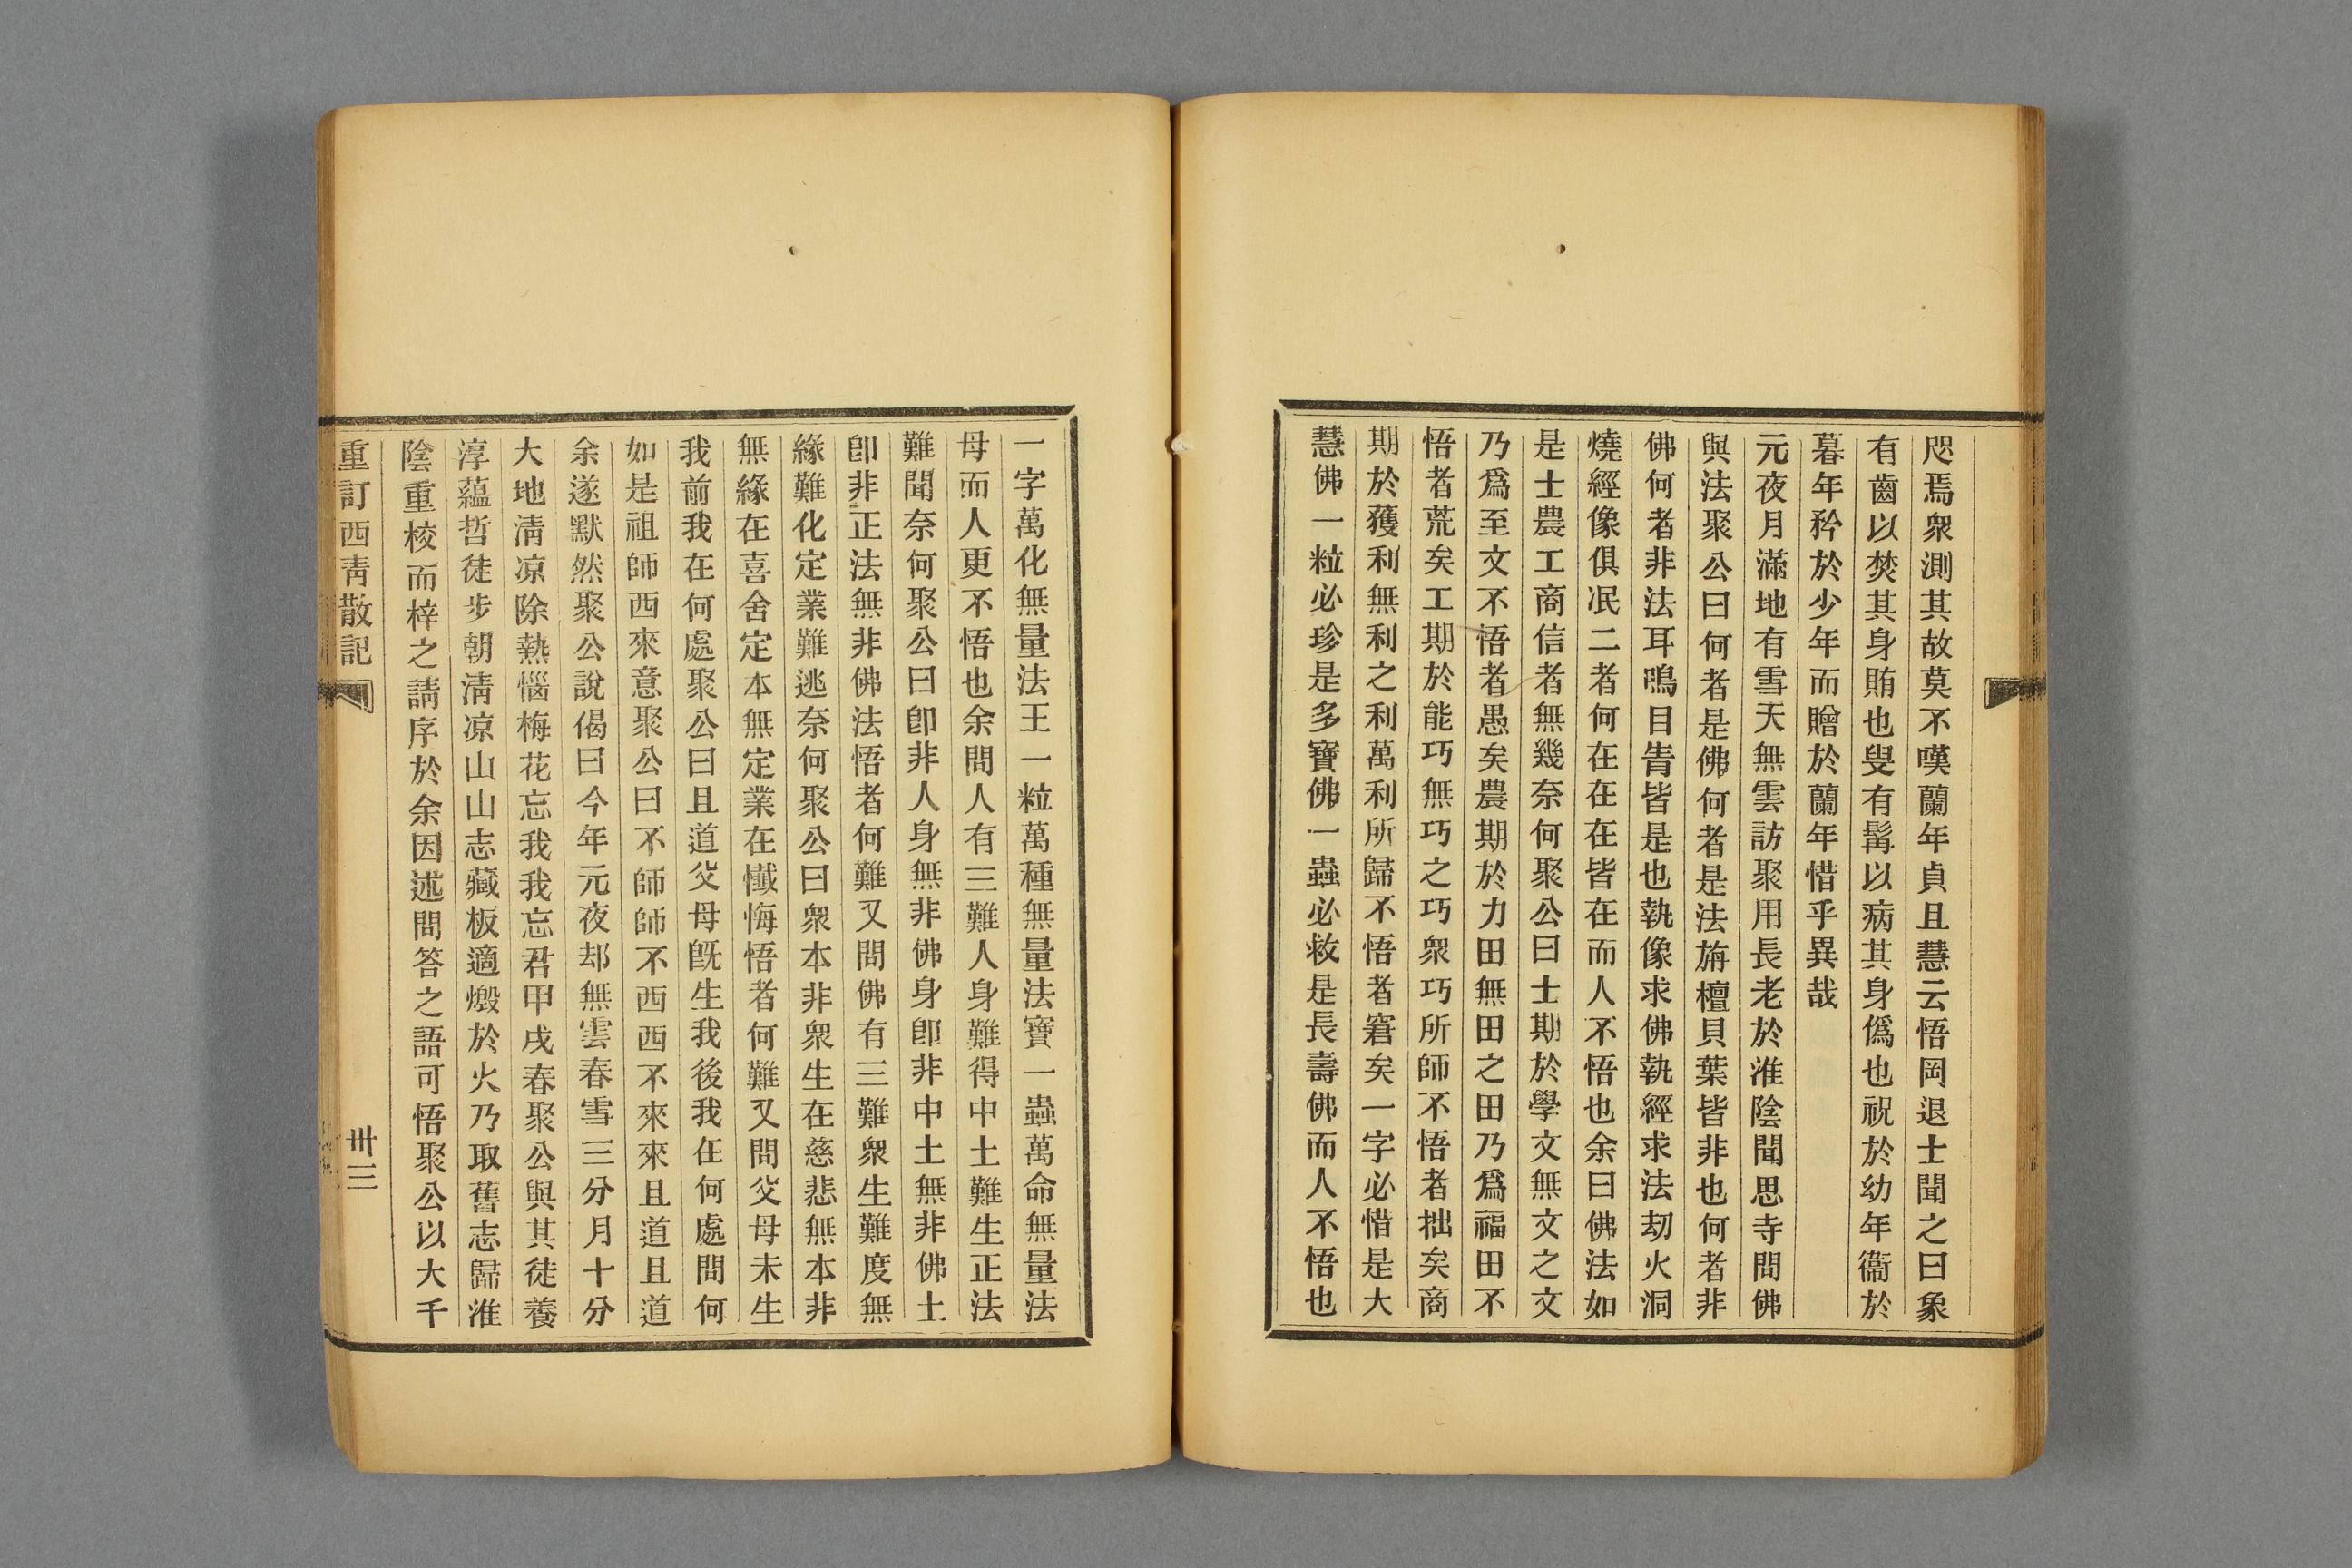 咫焉衆測其故莫不嘆蘭年貞且慧云悟岡退士聞之曰象
有齒以焚其身賄也叟有髯以病其身僞也祝於幼年衞於
暮年矜於少年而贈於蘭年惜乎異哉
元夜月滿地有雪天無雲訪聚用長老於淮陰聞思寺問佛
與法聚公曰何者是佛何者是法旃檀貝葉皆非也何者非
佛何者非法耳鳴目眚皆是也執像求佛執經求法刧火洞
燒經像俱冺二者何在在在皆在而人不悟也余曰佛法如
是士農工商信者無幾奈何聚公曰士期於學文無文之文
乃爲至文不悟者愚矣農期於力田無田之田乃爲福田不
悟者荒矣工期於能巧無巧之巧衆巧所師不悟者拙矣商
期於獲利無利之利萬利所歸不悟者窘矣一字必惜是大
慧佛一粒必珍是多寶佛一蟲必救是長壽佛而人不悟也
一字萬化無量法王一粒萬種無量法寶一蟲萬命無量法
母而人更不悟也余問人有三難人身難得中土難生正法
難聞奈何聚公曰卽非人身無非佛身卽非中土無非佛土
卽非正法無非佛法悟者何難又問佛有三難衆生難度無
緣難化定業難逃奈何聚公曰衆本非衆生在慈悲無本非
無緣在喜舍定本無定業在懺悔悟者何難又問父母未生
我前我在何處聚公曰且道父母旣生我後我在何處問何
如是祖師西來意聚公曰不師師不西西不來來且道且道
余遂默然聚公說偈曰今年元夜却無雲春雪三分月十分
大地清凉除熱惱梅花忘我我忘君甲戌春聚公與其徒養
淳蘊哲徒步朝清凉山山志藏板適燬於火乃取舊志歸淮
陰重校而梓之請序於余因述問答之語可悟聚公以大千
重訂西青散記
卅三